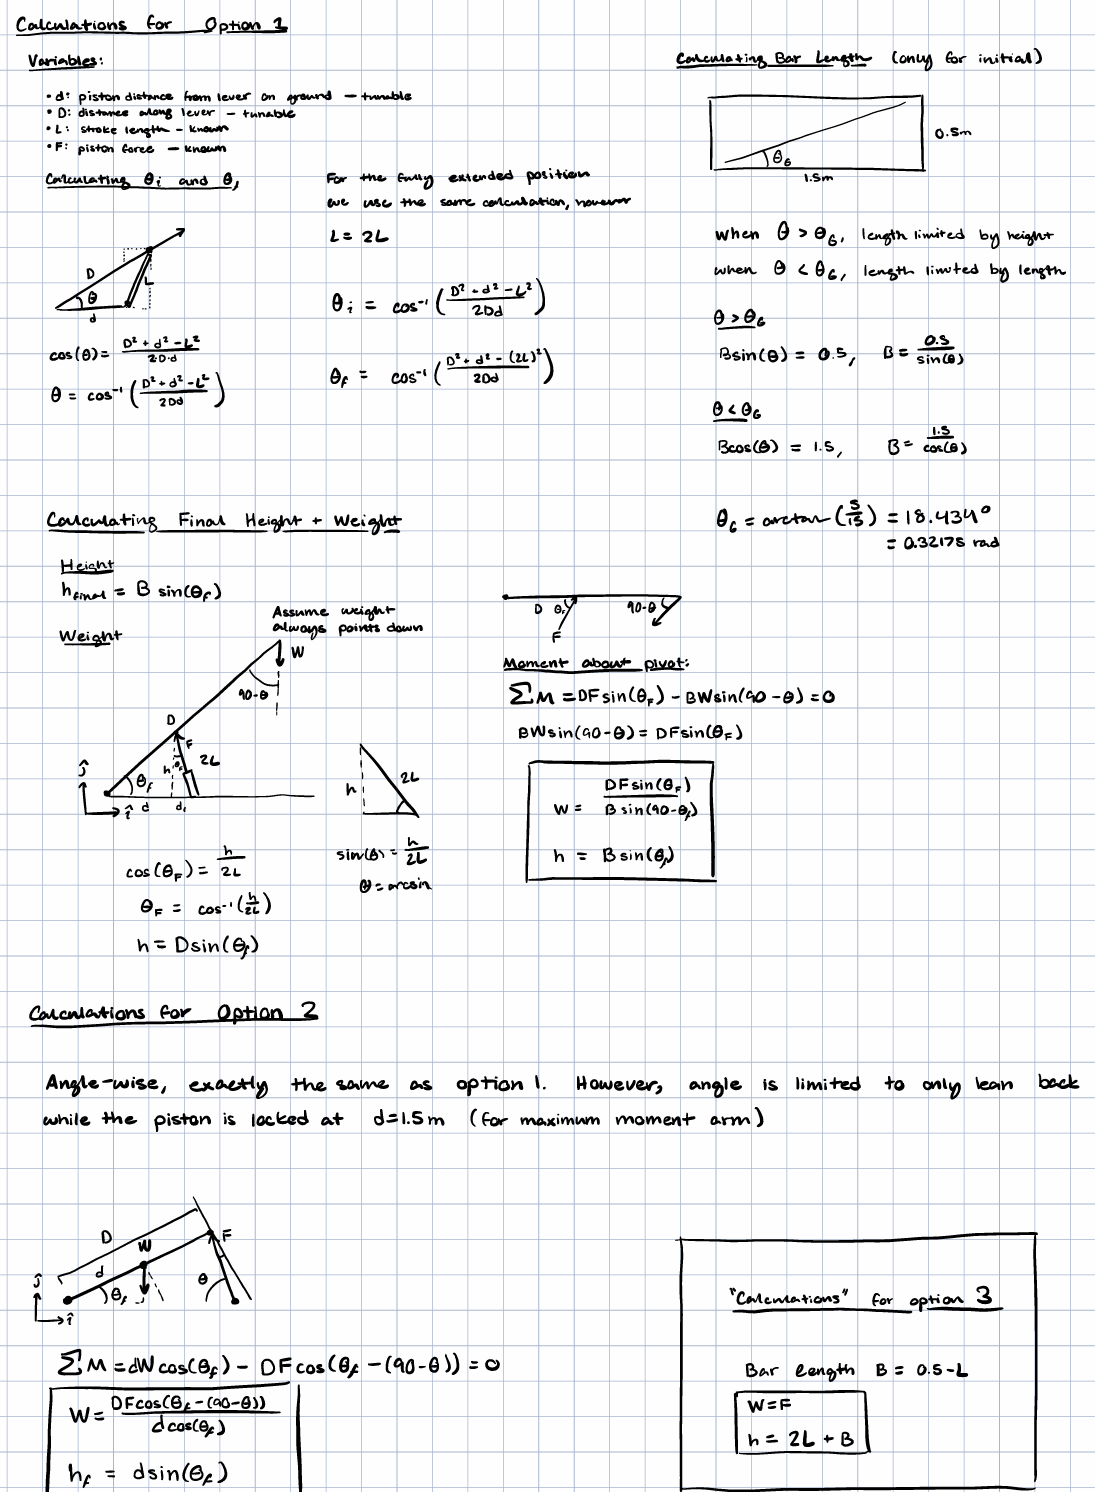 Calculations for Option 1
Variables:
• d: piston distance from lever on ground – tunable
• D: distance along lever – tunable
• L: stroke length – known
• F: piston force – known
Calculating θi and θ,
D
L
θ
d
cos(θ) = D² + d² - L² / 2D·d
θ = cos⁻¹ ( D² + d² - L² / 2Dd )
For the fully extended position
we use the same calculation, however
L = 2L
θi = cos⁻¹ ( D² + d² - L² / 2Dd )
θf = cos⁻¹ ( D² + d² - (2L)² / 2Dd )
Calculating Bar Length (only for initial)
0.5m
θG
1.5m
when θ > θG, length limited by height
when θ < θG, length limited by length
θ > θG
Bsin(θ) = 0.5, B = 0.5 / sin(θ)
θ < θG
Bcos(θ) = 1.5, B = 1.5 / cos(θ)
θG = arctan (5/15) = 18.434°
= 0.32175 rad
Calculating Final Height + Weight
Height
hfinal = B sin(θf)
Weight
Assume weight
always points down
W
90-θ
D
F
2L
h
θF
θf
ĵ
î
d
d,
h
2L
cos(θF) = h / 2L
θF = cos⁻¹(h/2L)
h = Dsin(θf)
sin(θ) = h / 2L
θ = arcsin
D
θF
F
90-θ
Moment about pivot:
∑M = DFsin(θF) - BWsin(90-θ) = 0
BWsin(90-θ) = DFsin(θF)
W = DFsin(θF) / Bsin(90-θf)
h = Bsin(θf)
Calculations for Option 2
Angle-wise, exactly the same as option 1. However, angle is limited to only lean back
while the piston is locked at d=1.5m (for maximum moment arm)
D
W
F
d
θ
θf
ĵ
î
∑M = dWcos(θf) - DFcos(θf - (90-θ)) = 0
W = DFcos(θf - (90-θ)) / dcos(θf)
hf = dsin(θf)
"Calculations" for option 3
Bar length B = 0.5-L
W=F
h = 2L + B